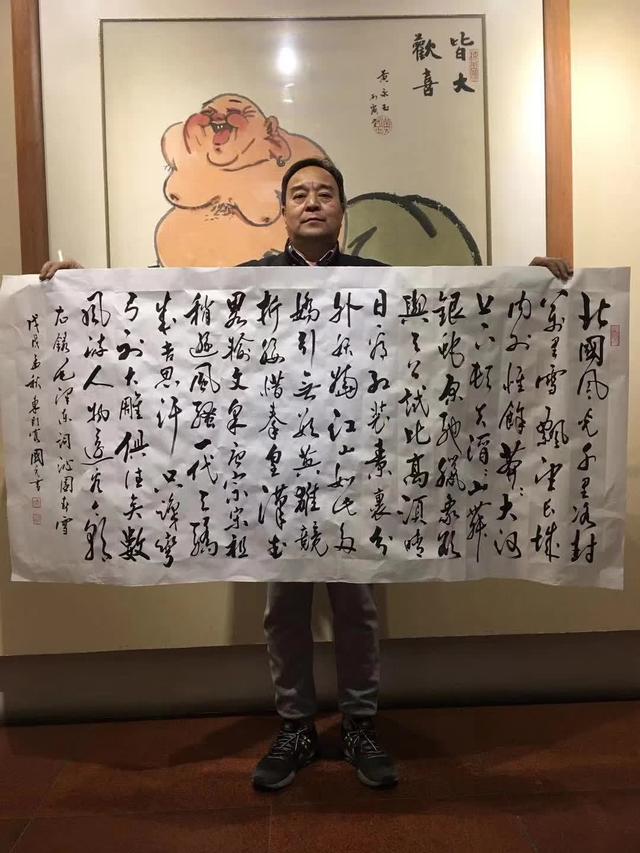 皆大
歡喜
黄永玉
北國風光千里冰封
萬里雪飄望长城
内外惟餘莽〻大河
上下頓失滔〻山舞
銀蛇原馳臘象欲
與天公試比高須晴
日看红裝素裹分
外妖嬈江山如此多
嬌引無數英雄競
折腰惜秦皇漢武
畧输文采唐宗宋祖
稍遜風騷一代天骄
成吉思汗只識彎
弓射大雕俱往矣數
風流人物還看今朝
右錄毛澤东詞沁園春雪
戊戌孟秋